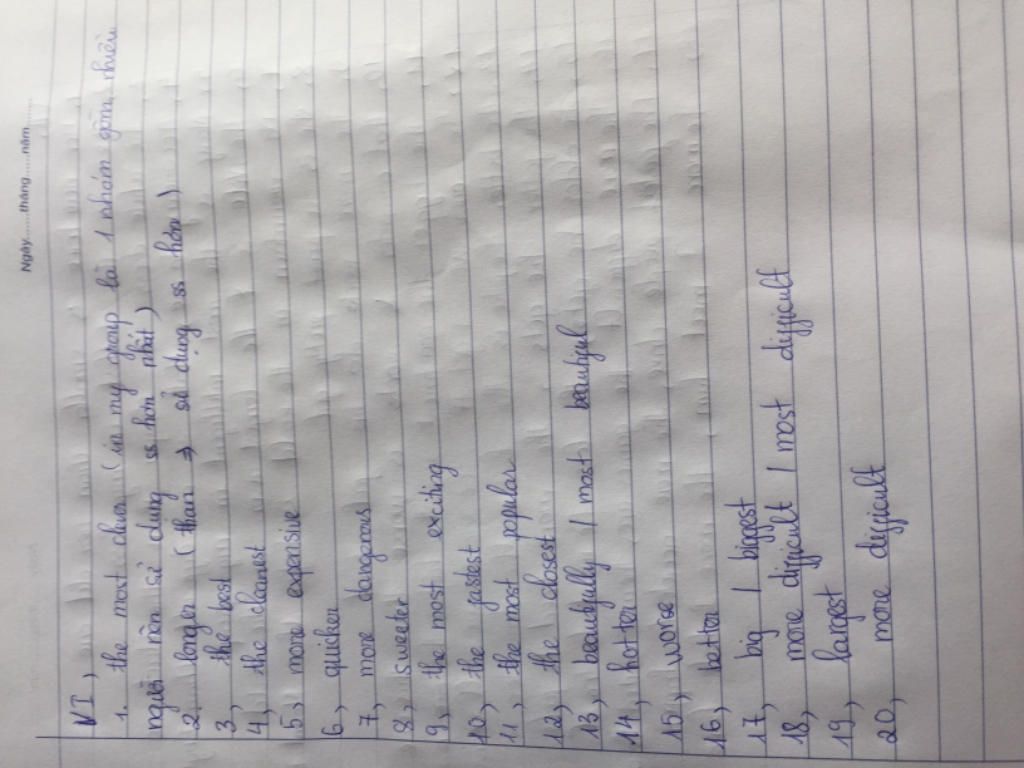 Ngày.........tháng.......năm..........
VI,
1. the most clever (in my group là 1 nhóm gồm nhiều
người nên sẽ dùng ss hơn nhất)
2. longer (than => sử dụng ss hơn)
3, the best
4, the cleanest
5, more expensive
6, quicker
7, more dangerous
8, sweeter
9, the most exciting
10, the fastest
11, the most popular
12, the closest
13, beautifully / most beautiful
14, hotter
15, worse
16, better
17, big / biggest
18, more difficult / most difficult
19, largest
20, more difficult